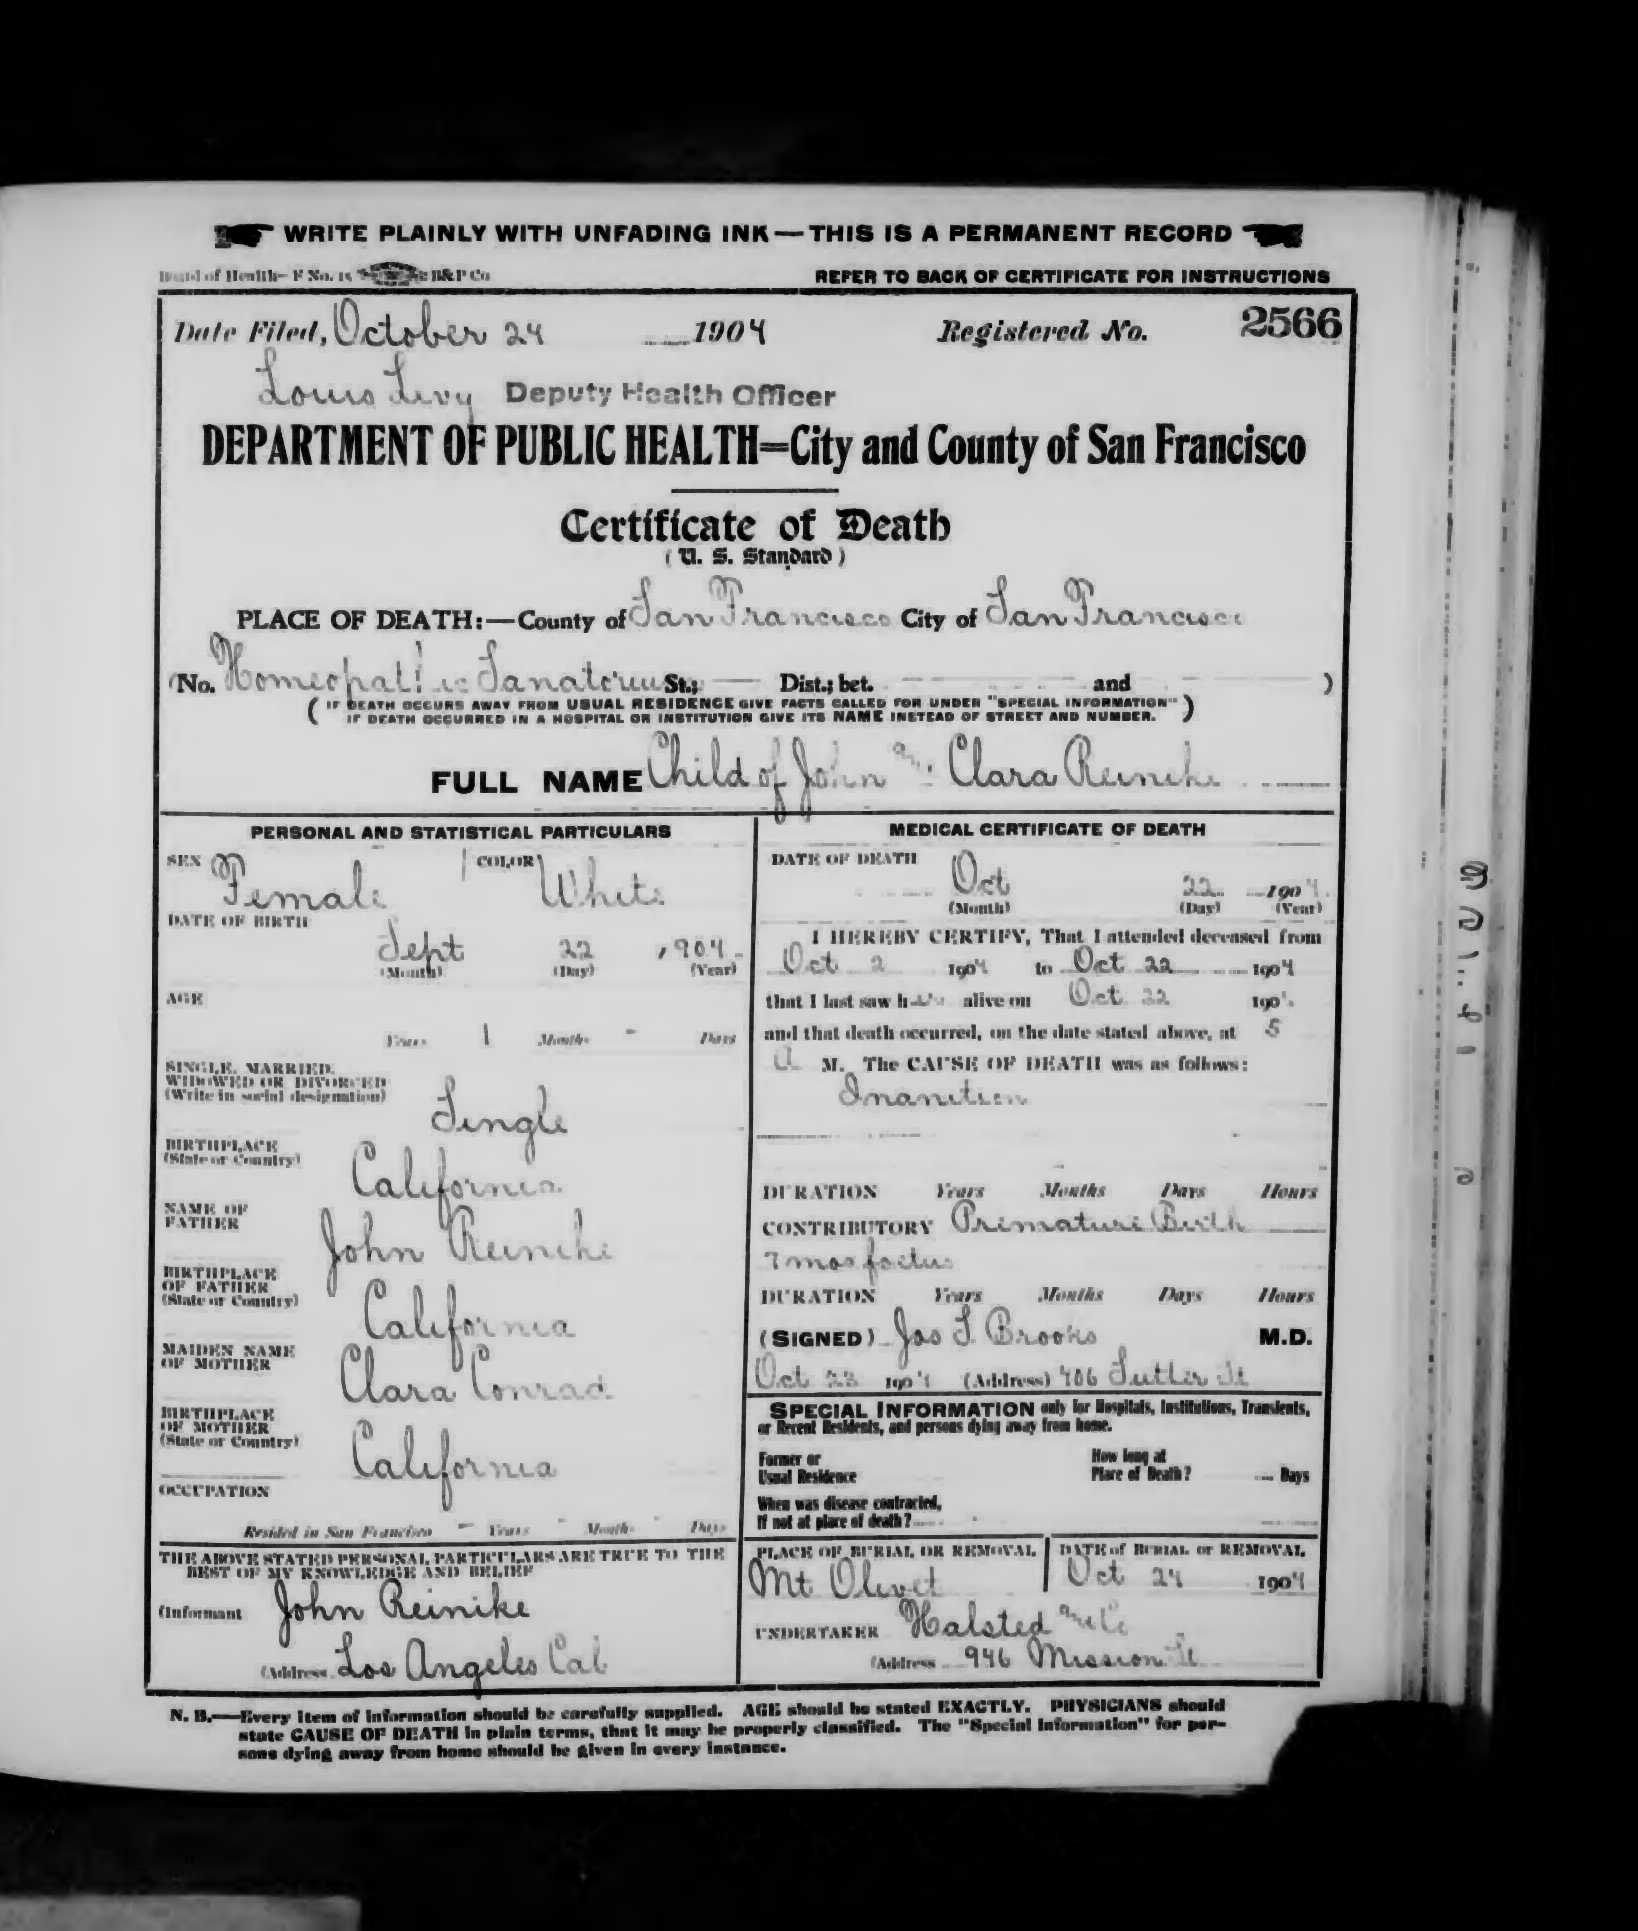 WRITE PLAINLY WITH UNFADING INK — THIS IS A PERMANENT RECORD
Board of Health—F No. 15 B&P Co
REFER TO BACK OF CERTIFICATE FOR INSTRUCTIONS
Date Filed, October 24 1904 Registered No. 2566
Louis Levy Deputy Health Officer
DEPARTMENT OF PUBLIC HEALTH=City and County of San Francisco
Certificate of Death
( U. S. Standard )
PLACE OF DEATH:—County of San Francisco City of San Francisco
(No. Homeopathic Sanatorium St.; Dist.; bet. and )
( IF DEATH OCCURS AWAY FROM USUAL RESIDENCE GIVE FACTS CALLED FOR UNDER "SPECIAL INFORMATION"
IF DEATH OCCURRED IN A HOSPITAL OR INSTITUTION GIVE ITS NAME INSTEAD OF STREET AND NUMBER. )
FULL NAME Child of John and Clara Reinike
PERSONAL AND STATISTICAL PARTICULARS
SEX Female COLOR White
DATE OF BIRTH
Sept 22 1904
(Month) (Day) (Year)
AGE
Years 1 Months - Days
SINGLE, MARRIED,
WIDOWED OR DIVORCED
(Write in social designation)
Single
BIRTHPLACE
(State or Country)
California
NAME OF
FATHER
John Reinike
BIRTHPLACE
OF FATHER
(State or Country)
California
MAIDEN NAME
OF MOTHER
Clara Conrad
BIRTHPLACE
OF MOTHER
(State or Country)
California
OCCUPATION
Resided in San Francisco - Years - Months - Days
THE ABOVE STATED PERSONAL PARTICULARS ARE TRUE TO THE
BEST OF MY KNOWLEDGE AND BELIEF
(Informant John Reinike
(Address Los Angeles Cal
MEDICAL CERTIFICATE OF DEATH
DATE OF DEATH
Oct 22 1904
(Month) (Day) (Year)
I HEREBY CERTIFY, That I attended deceased from
Oct 2 1904 to Oct 22 1904
that I last saw h alive on Oct 22 190
and that death occurred, on the date stated above, at 5
A M. The CAUSE OF DEATH was as follows:
Inanition
DURATION Years Months Days Hours
CONTRIBUTORY Primature Birth
7 mos foetus
DURATION Years Months Days Hours
(SIGNED) Jas T Brooks M.D.
Oct 23 1904 (Address) 406 Sutter St
SPECIAL INFORMATION only for Hospitals, Institutions, Transients,
or Recent Residents, and persons dying away from home.
Former or
Usual Residence
How long at
Place of Death? Days
When was disease contracted,
If not at place of death?
PLACE OF BURIAL OR REMOVAL
Mt Olivet
DATE of BURIAL or REMOVAL
Oct 24 1904
UNDERTAKER Halsted and Co
(Address 946 Mission St
N. B.—Every item of information should be carefully supplied. AGE should be stated EXACTLY. PHYSICIANS should
state CAUSE OF DEATH in plain terms, that it may be properly classified. The "Special Information" for per-
sons dying away from home should be given in every instance.